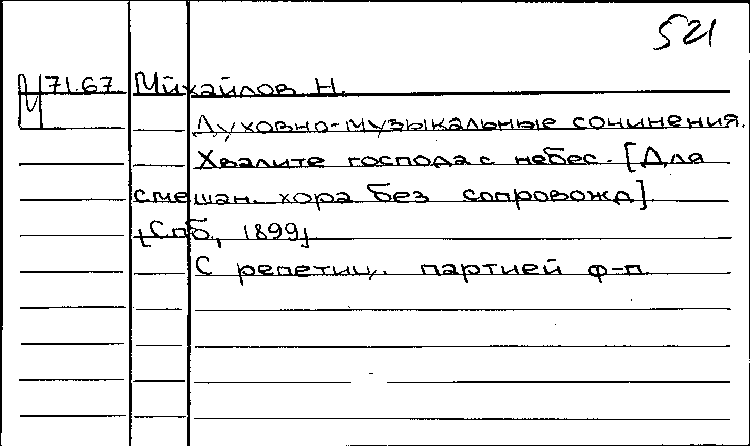 521
М 71.67 Михайлов Н.
Духовно-музыкальные сочинения.
Хвалите господа с небес. [Для
смешан. хора без сопровожд].
[Спб, 1899]
С репетиц. партией ф-п.